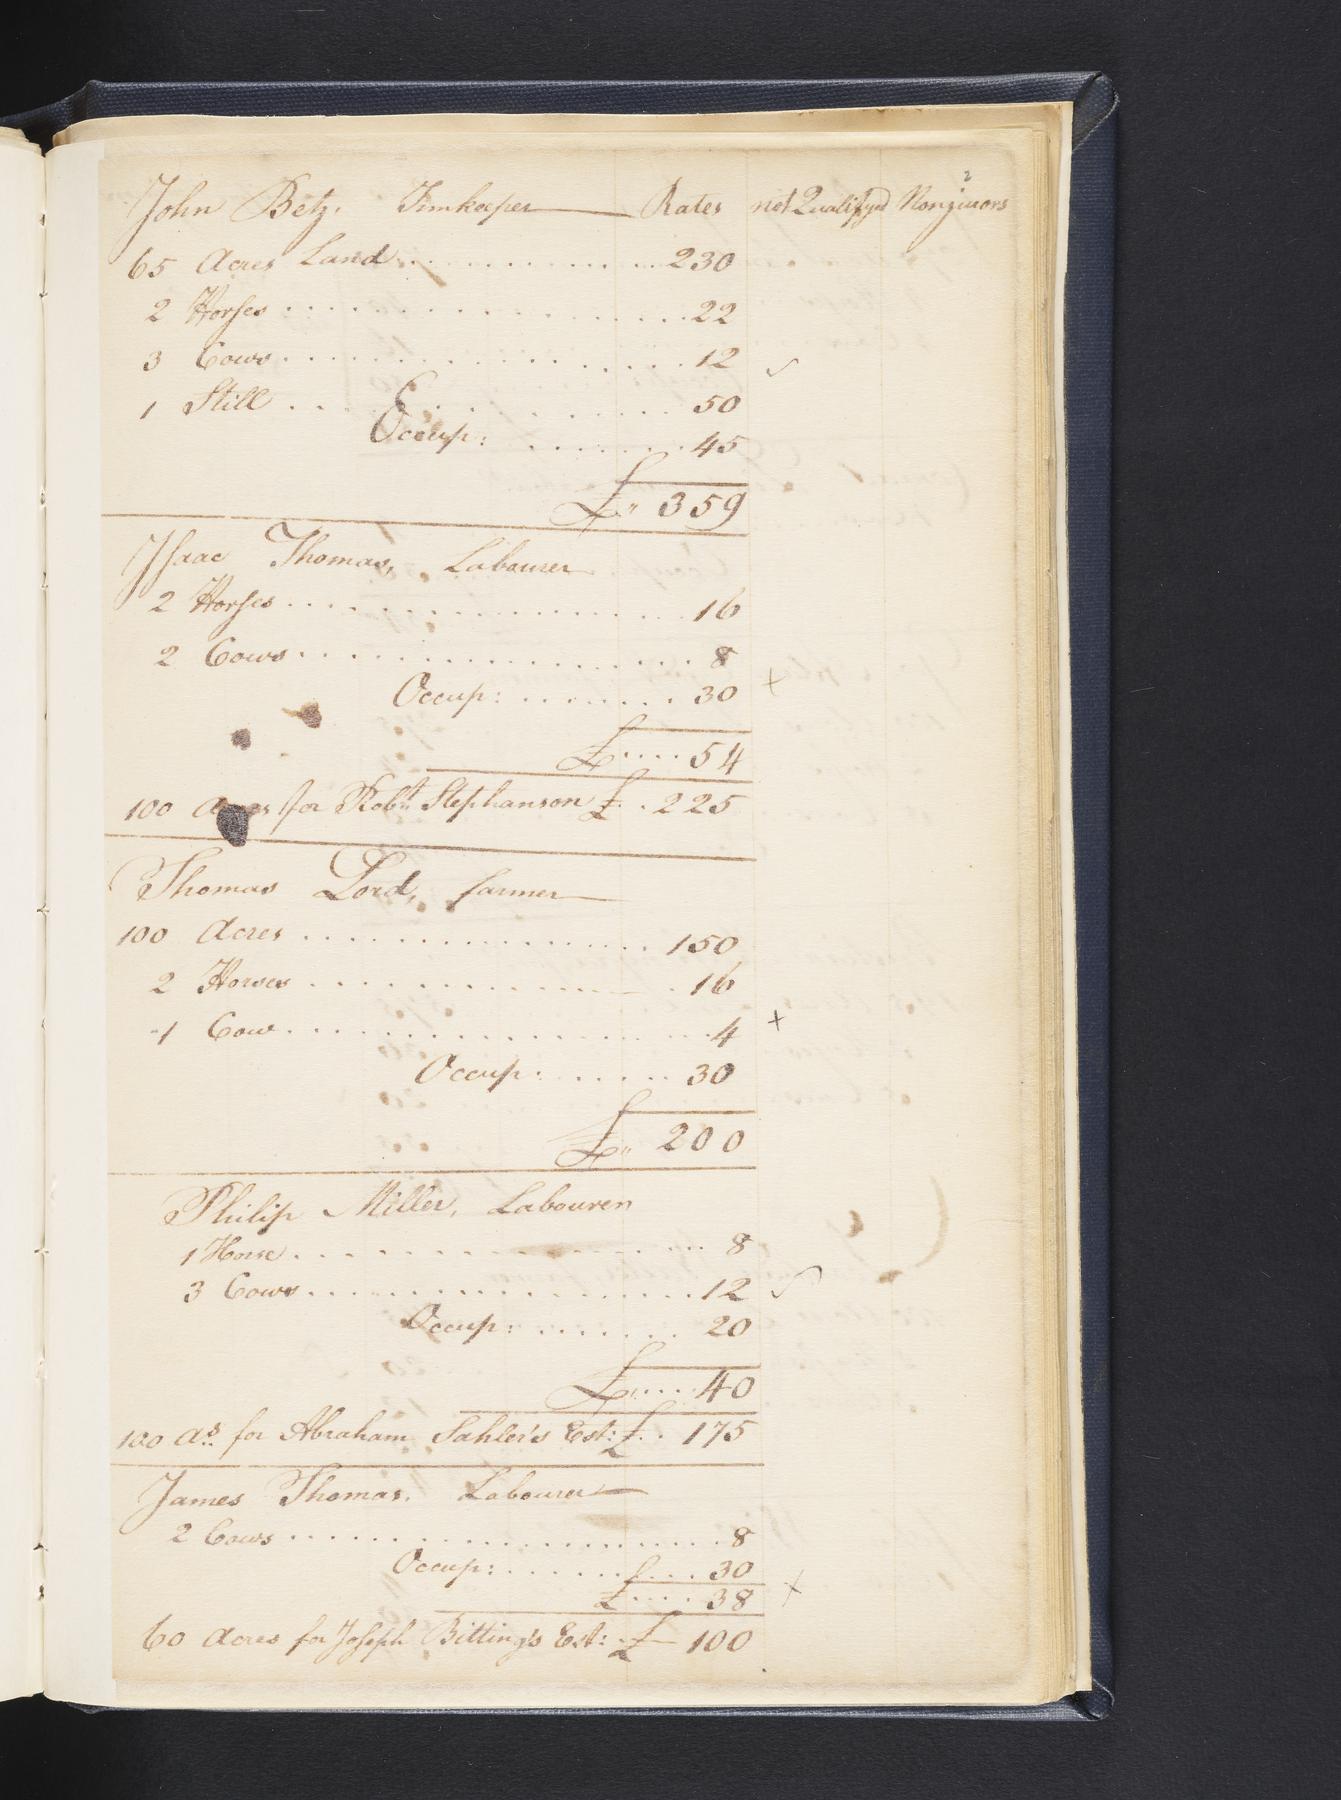 2
John Betz, Innkeeper Rates not Qualifyed Nonjurors
65 Acres Land 230
2 Horses 22
3 Cows 12
1 Still 50
Occup: 45
£ 359
Isaac Thomas, Labourer
2 Horses 16
2 Cows 8
Occup: 30 x
£ 54
100 Acres for Robt. Stephanson £ 225
Thomas Lord, farmer
100 Acres 150
2 Horses 16
1 Cow 4 x
Occup: 30
£ 200
Philip Miller, Labourer
1 Horse 8
3 Cows 12
Occup: 20
£ 40
100 As. for Abraham Sahler's Est: £ 175
James Thomas, Labourer
2 Cows 8
Occup: 30
£ 38 x
60 Acres for Joseph Bitting's Est: £ 100